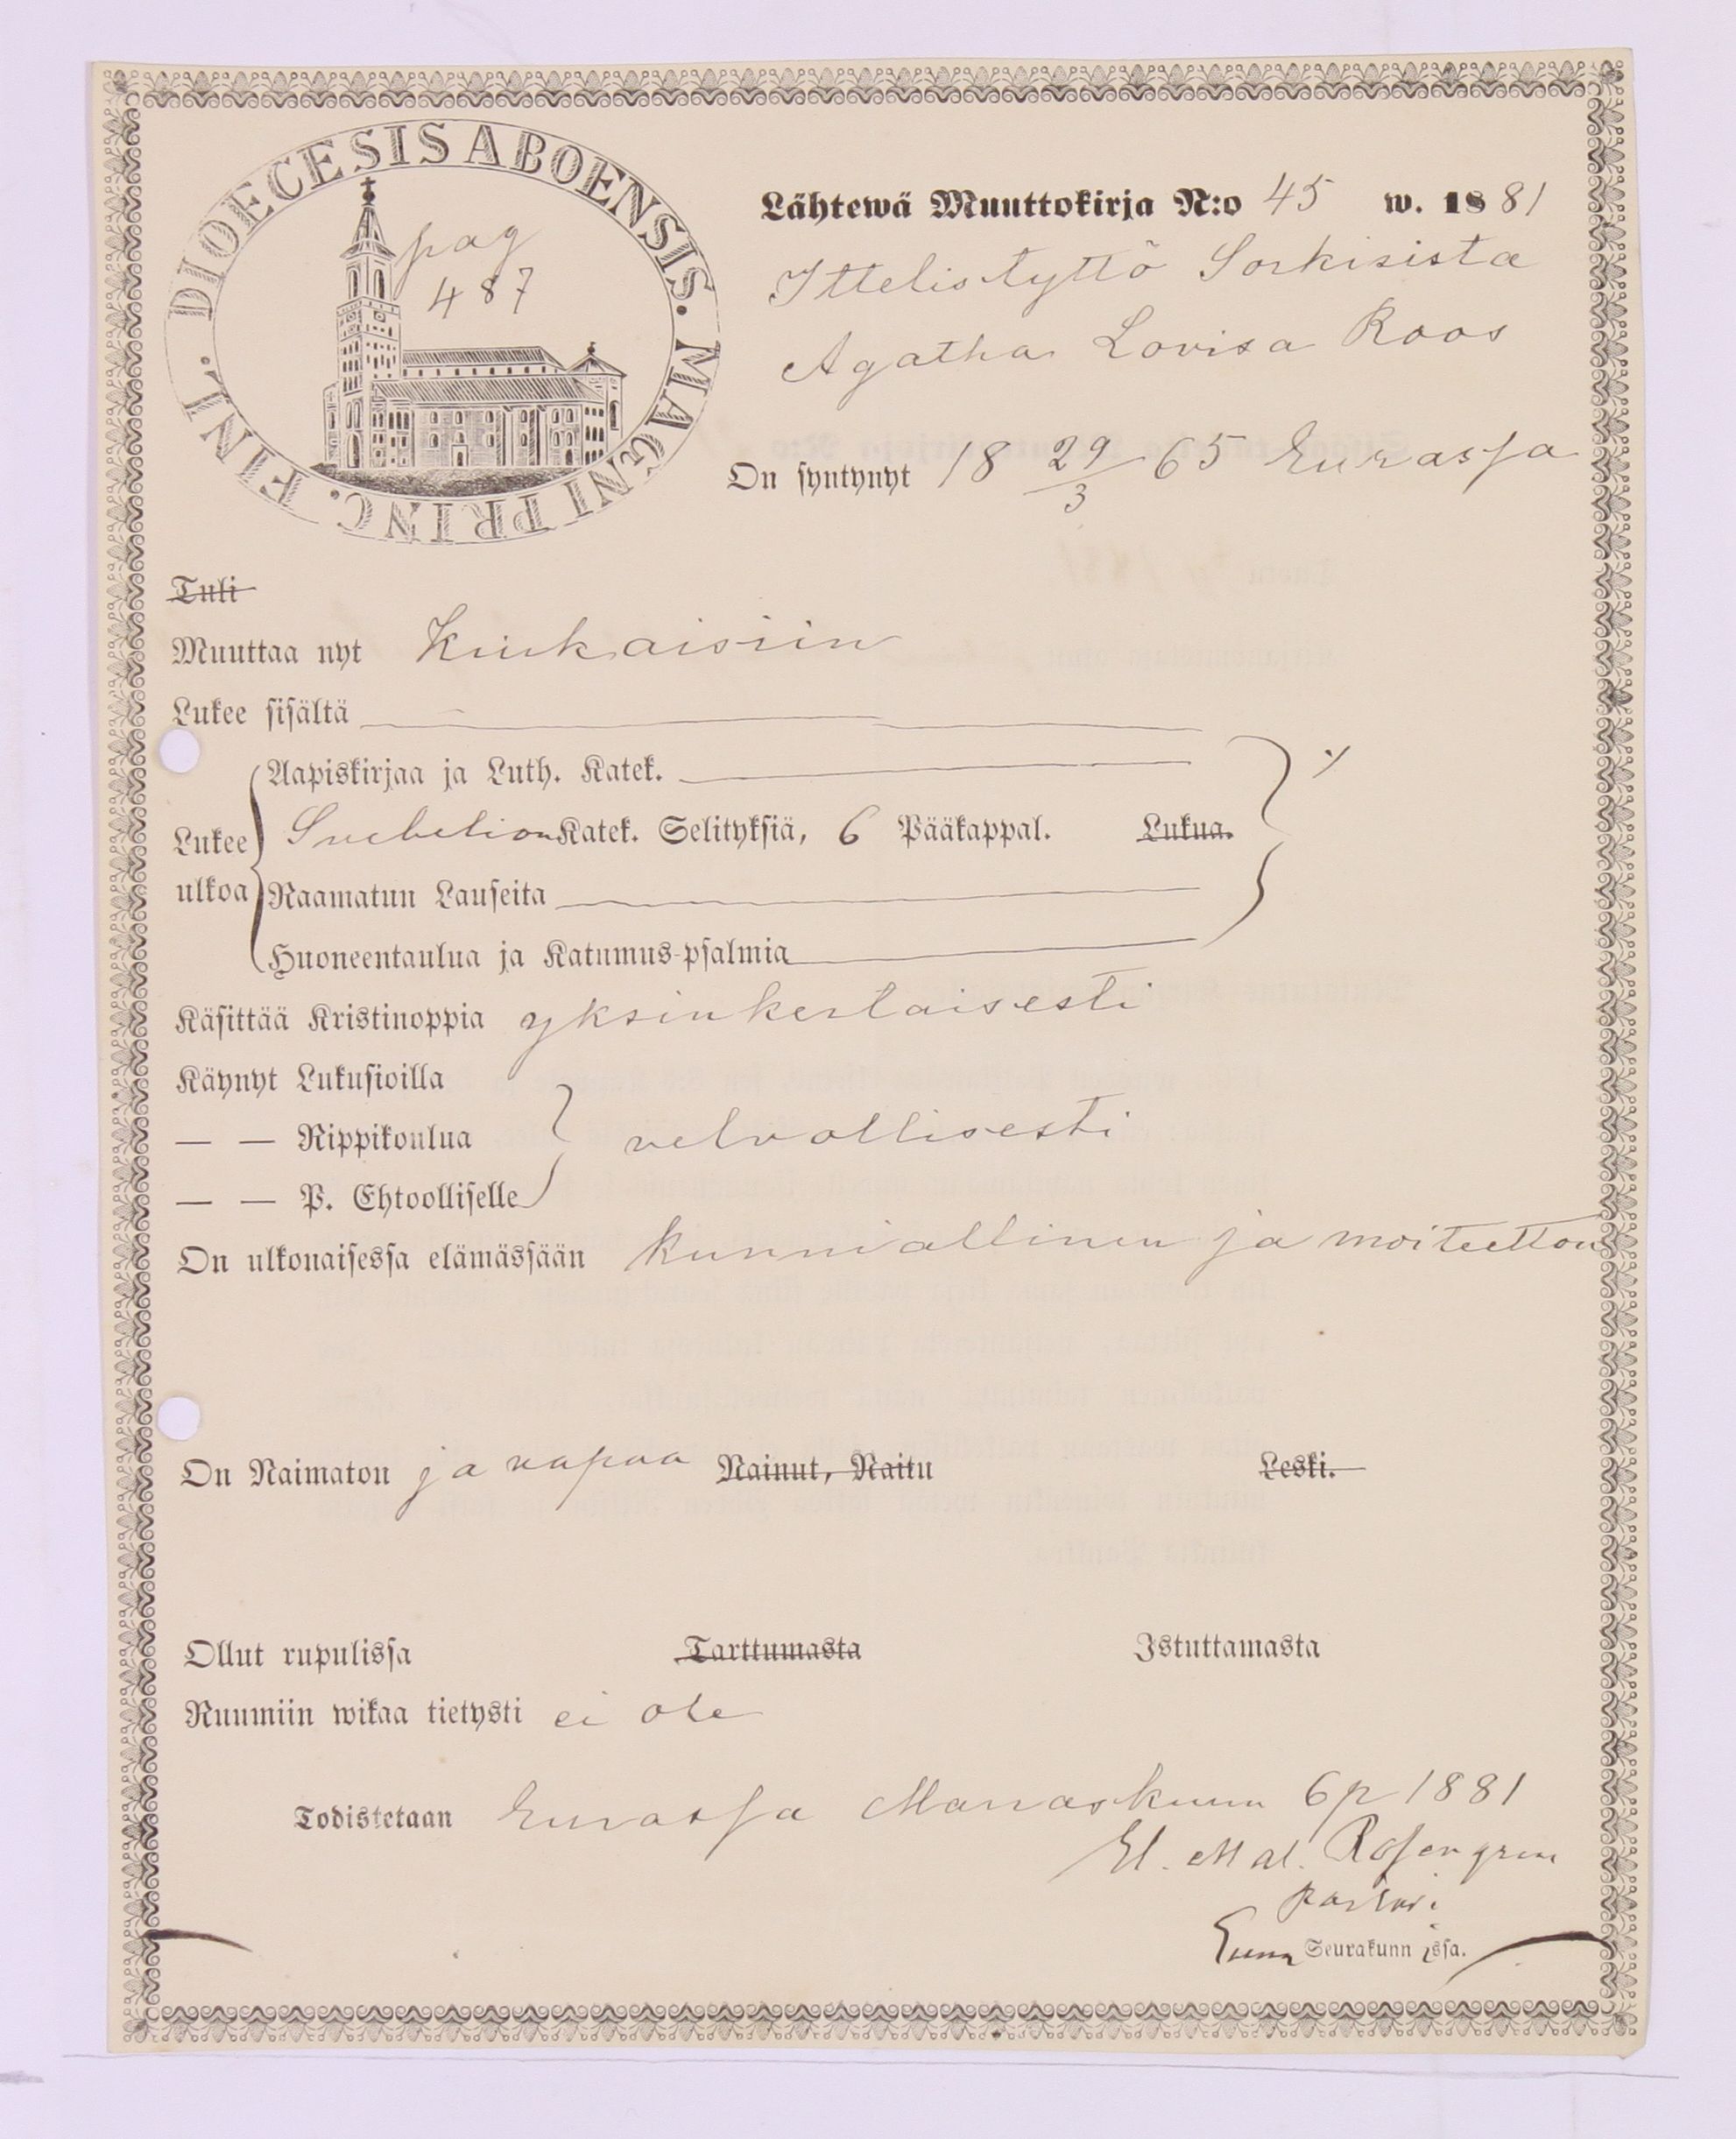 DIOECESIS ABOENSIS. MAGNI PRINC. FINL.
pag
487
Lähtewä Muuttokirja N:o 45 w. 1881
Ittelistyttö Sorkisista
Agatha Lovisa Roos
On syntynyt 18 29/3 65 Eurassa
Tuli
Muuttaa nyt Kiukaisiin
Lukee sisältä
Aapiskirjaa ja Luth. Katek.
Lukee ulkoa
Svebelion Katek. Selityksiä, 6 Pääkappal. Lukua.
Raamatun Lauseita
Huoneentaulua ja Katumus-psalmia
Käsittää Kristinoppia yksinkertaisesti
Käynyt Lukusioilla
— — Rippikoulua velvollisesti
— — P. Ehtoolliselle
On ulkonaisessa elämässään kunniallinen ja moiteetton
On Naimaton ja vapaa Nainut, Naitu Leski.
Ollut rupulissa Tarttumasta Istuttamasta
Ruumiin wikaa tietysti ei ole
Todistetaan Eurassa Marraskuun 6 p 1881
El. Mat. Rosengren
pastori
Euran Seurakunnissa.